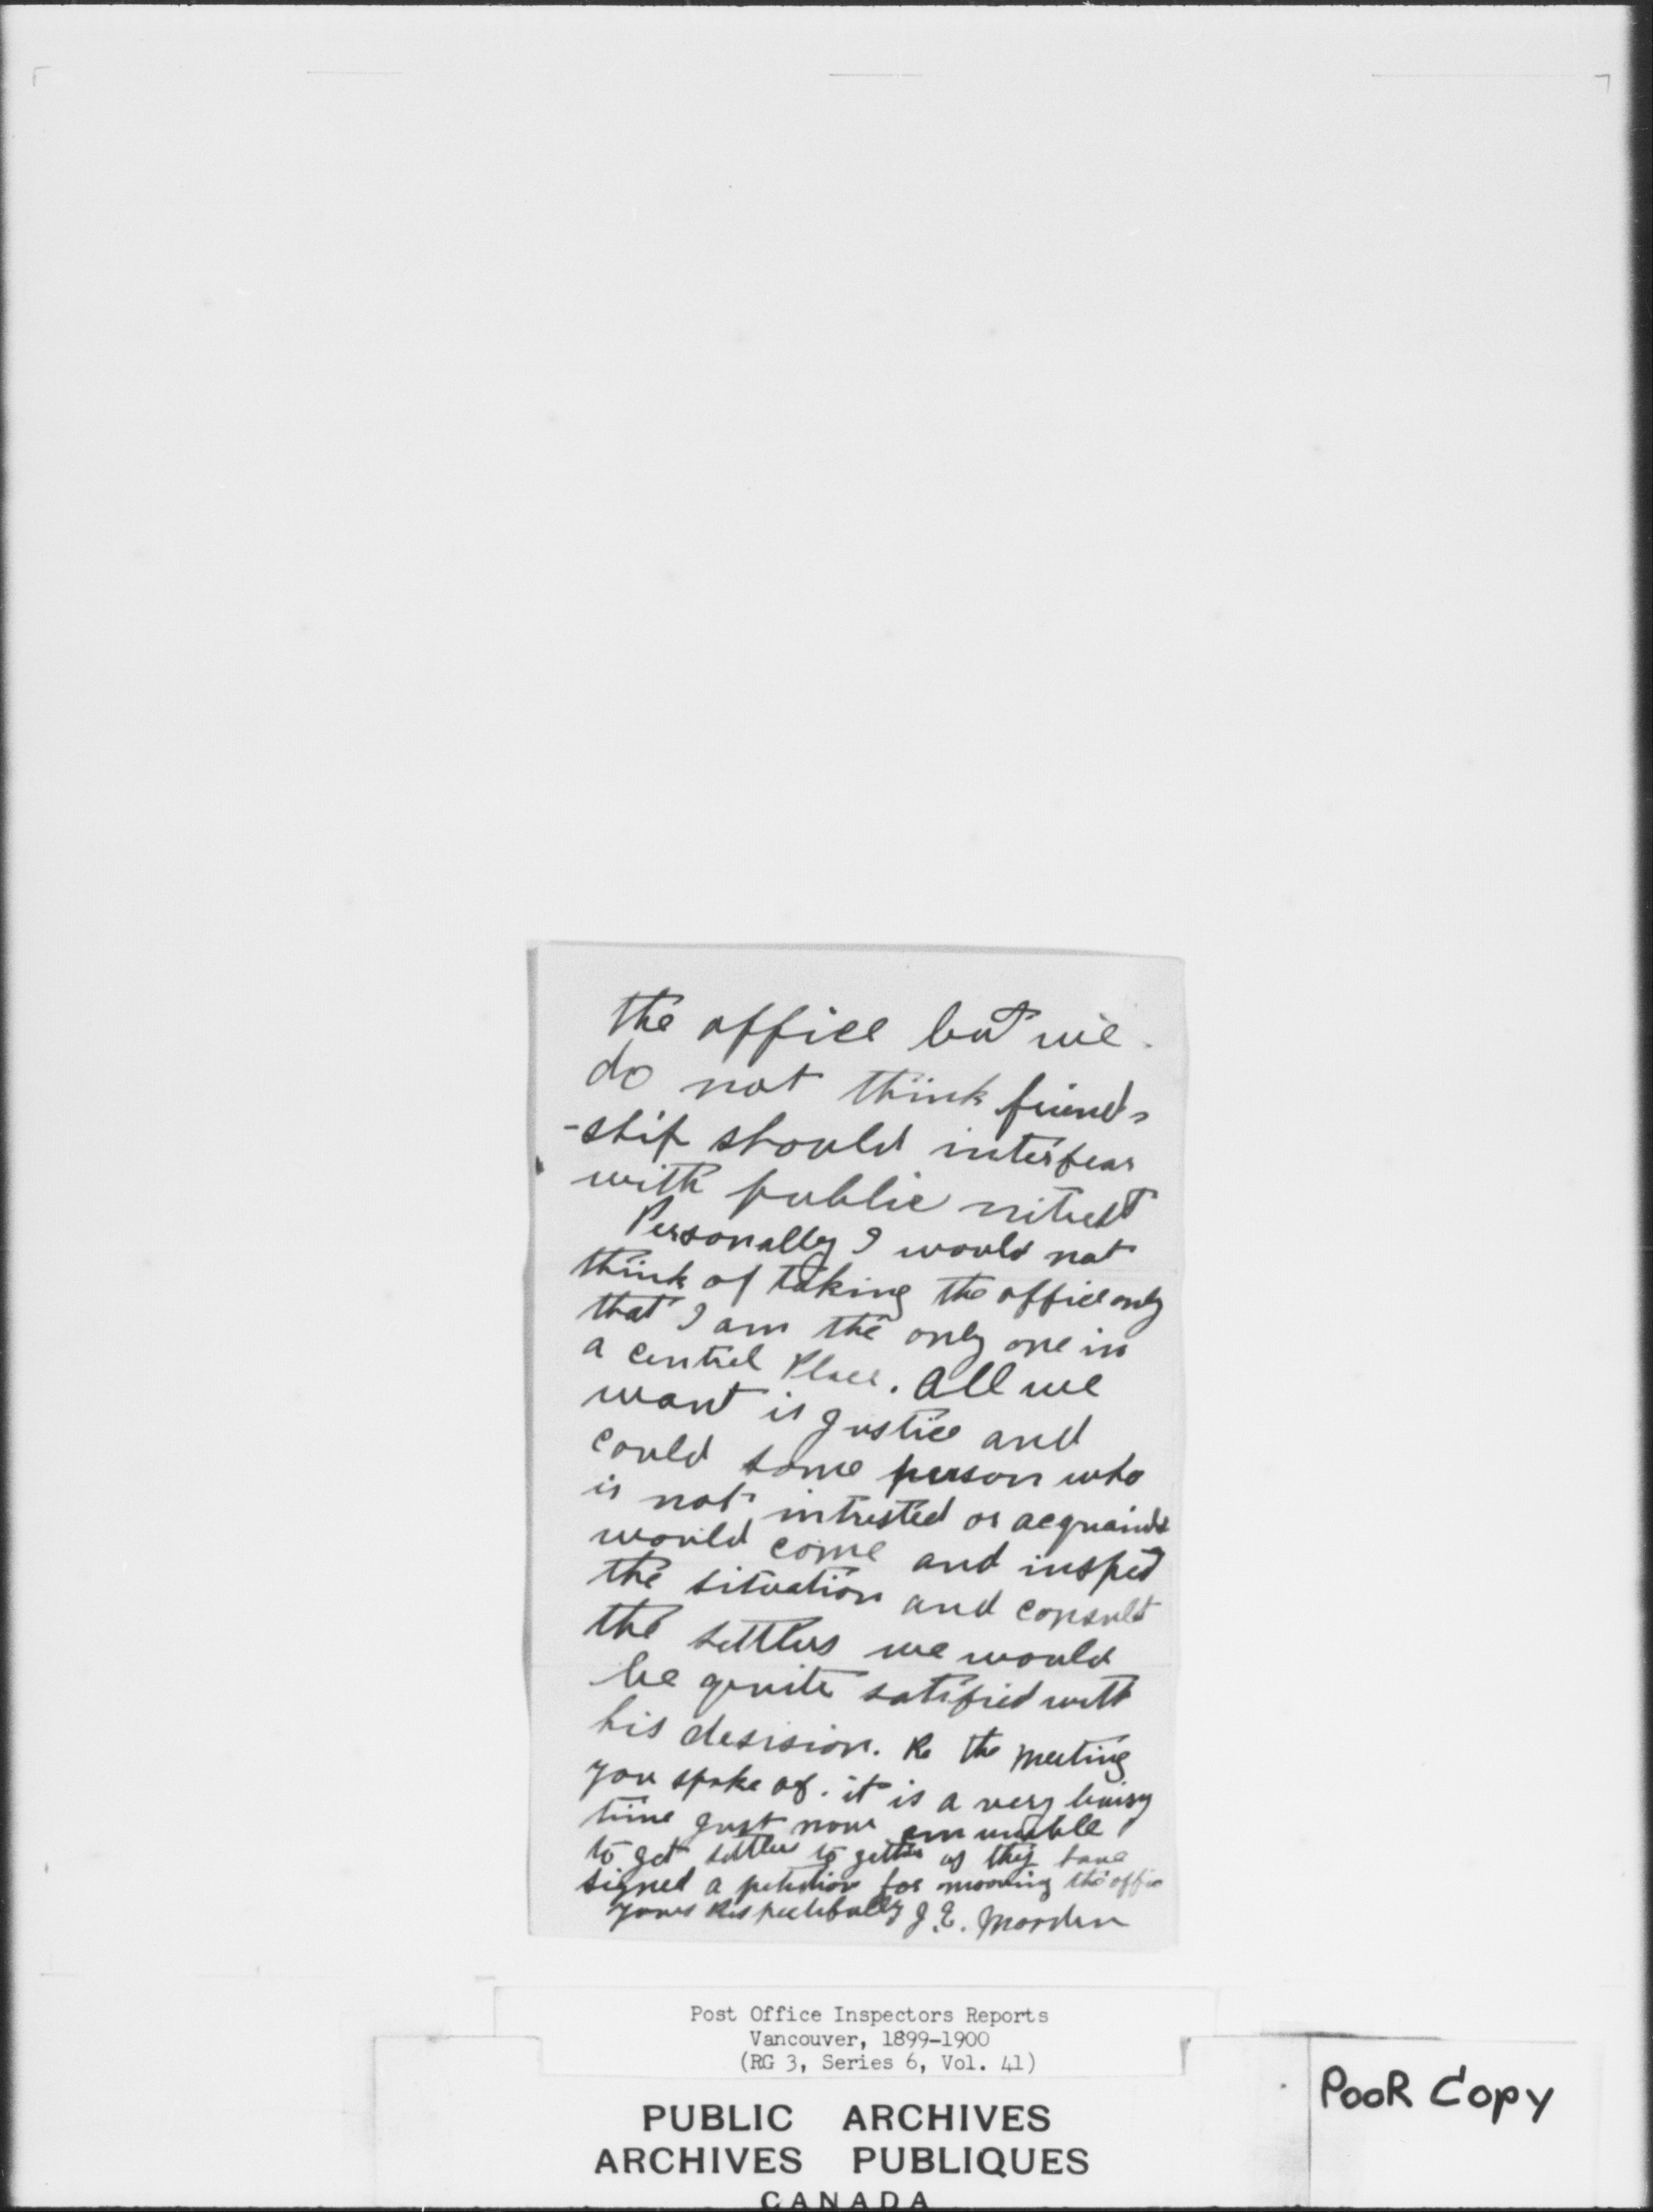 the office but we
do not think friend-
-ship should interfear
with public intrest
Personally I would not
think of taking the office only
that I am the only one in
a centrel Place. All we
want is Justice and
could some person who
is not intrested or acquaintd
would come and inspect
the situation and consult
the settlers we would
be quite satisfied with
his desision. Re the meeting
you spoke of. it is a very buisy
time Just now am unable
to get settlers to gether as they have
signed a petition for mooving the office
yours Respectfully J. E. Morden
Post Office Inspectors Reports
Vancouver, 1899-1900
(RG 3, Series 6, Vol. 41)
PUBLIC ARCHIVES
ARCHIVES PUBLIQUES
CANADA
POOR Copy